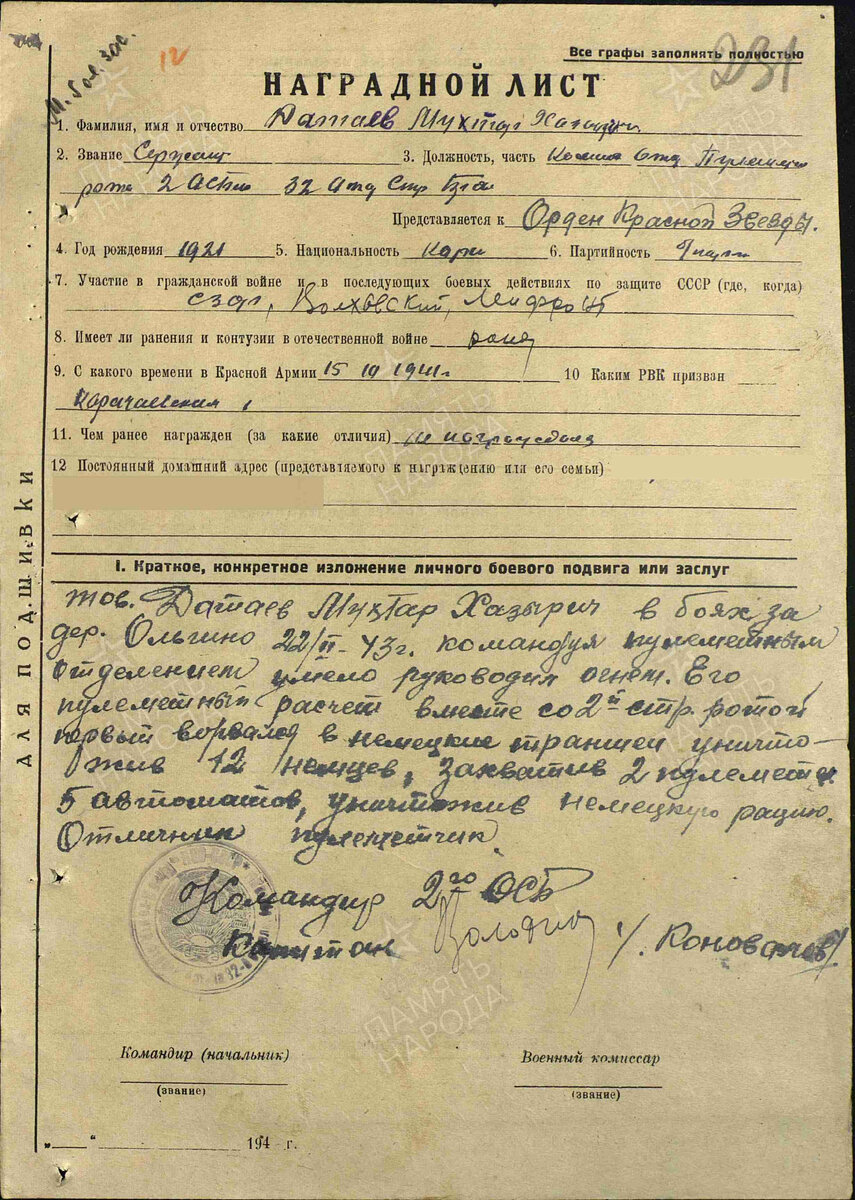 М. бол. 30с.
12
Все графы заполнять полностью
231
НАГРАДНОЙ ЛИСТ
1. Фамилия, имя и отчество Датаев Мухтар
2. Звание Сержант 3. Должность, часть
роты 2 32 отд стр
Представляется к Орден Красной Звезды.
4. Год рождения 1921 5. Национальность 6. Партийность
7. Участие в гражданской войне и в последующих боевых действиях по защите СССР (где, когда)
Волховский,
8. Имеет ли ранения и контузии в отечественной войне
9. С какого времени в Красной Армии 15 1941г 10 Каким РВК призван
Карачаевским
11. Чем ранее награжден (за какие отличия) не
12 Постоянный домашний адрес (представляемого к награждению или его семьи)
I. Краткое, конкретное изложение личного боевого подвига или заслуг
тов. Датаев Мухтар Хазырич в боях за
дер. Ольгино 22/II-43г. командуя пулеметным
отделением умело руководил огнем. Его
пулеметный расчет вместе со 2й стр. ротой
первый ворвался в немецкие траншеи уничто-
жив 12 немцев, захватив 2 пулемета
5 автоматов, уничтожив немецкую рацию.
Отличник пулеметчик.
Командир 2го ОСБ
Капитан /Коновалов/
Командир (начальник)
Военный комиссар
(звание)
(звание)
„ “ 194 г.
ДЛЯ ПОДШИВКИ
ПАМЯТЬ НАРОДА